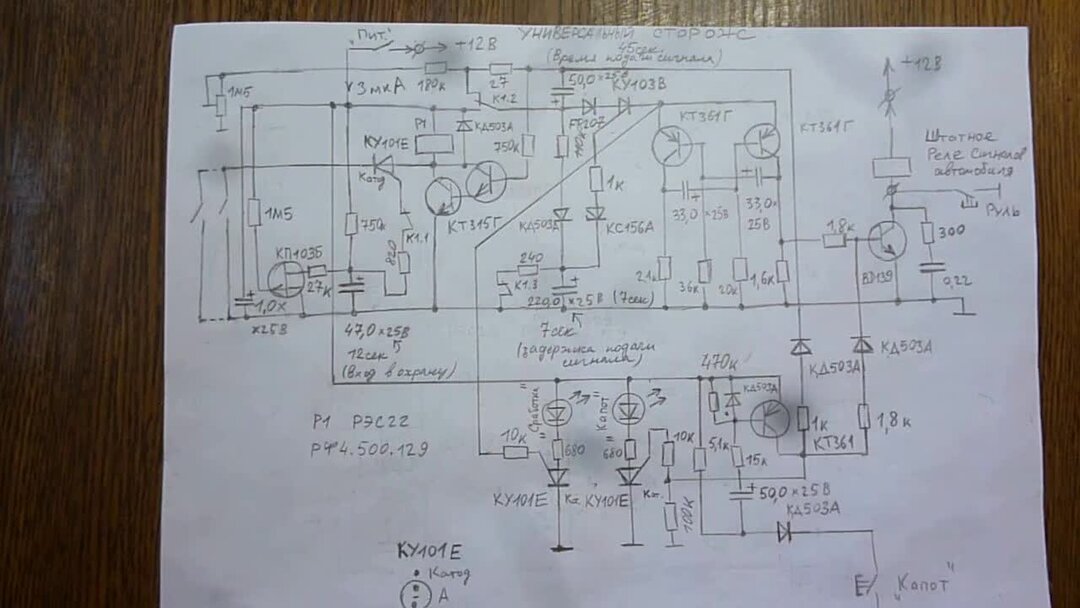 УНИВЕРСАЛЬНЫЙ СТОРОЖ
"Пит."
+12В
45сек.
(Время подачи сигнала)
+12В
3мкА
180к
27
К1.2
50,0×25В
КУ103В
1М5
Р1
КД503А
750к
КТ361Г
КТ361Г
КУ101Е
Катод
Штатное
Реле Сигналов
автомобиля
1к
33,0×25В
33,0×
25В
Руль
1М5
750к
К1.1
820
КТ315Г
КД503А
КС156А
1,8к
300
КП103Б
27к
240
К1.3
2.1к
36к
20к
1,6к
ВD139
0,22
1,0×
×25В
47,0×25В
220,0×25В (7сек)
12сек
(Вход в охрану)
7сек
(задержка подачи
сигнала)
470к
КД503А
КД503А
КД503А
"Сработка"
"Капот"
Р1 РЭС22
РФ4.500.129
10к
680
680
10к
5,1к
15к
1к
КТ361
1,8к
КУ101Е
Ка.
КУ101Е
Кат.
100к
50,0×25В
КД503А
КУ101Е
Катод
А
"Капот"